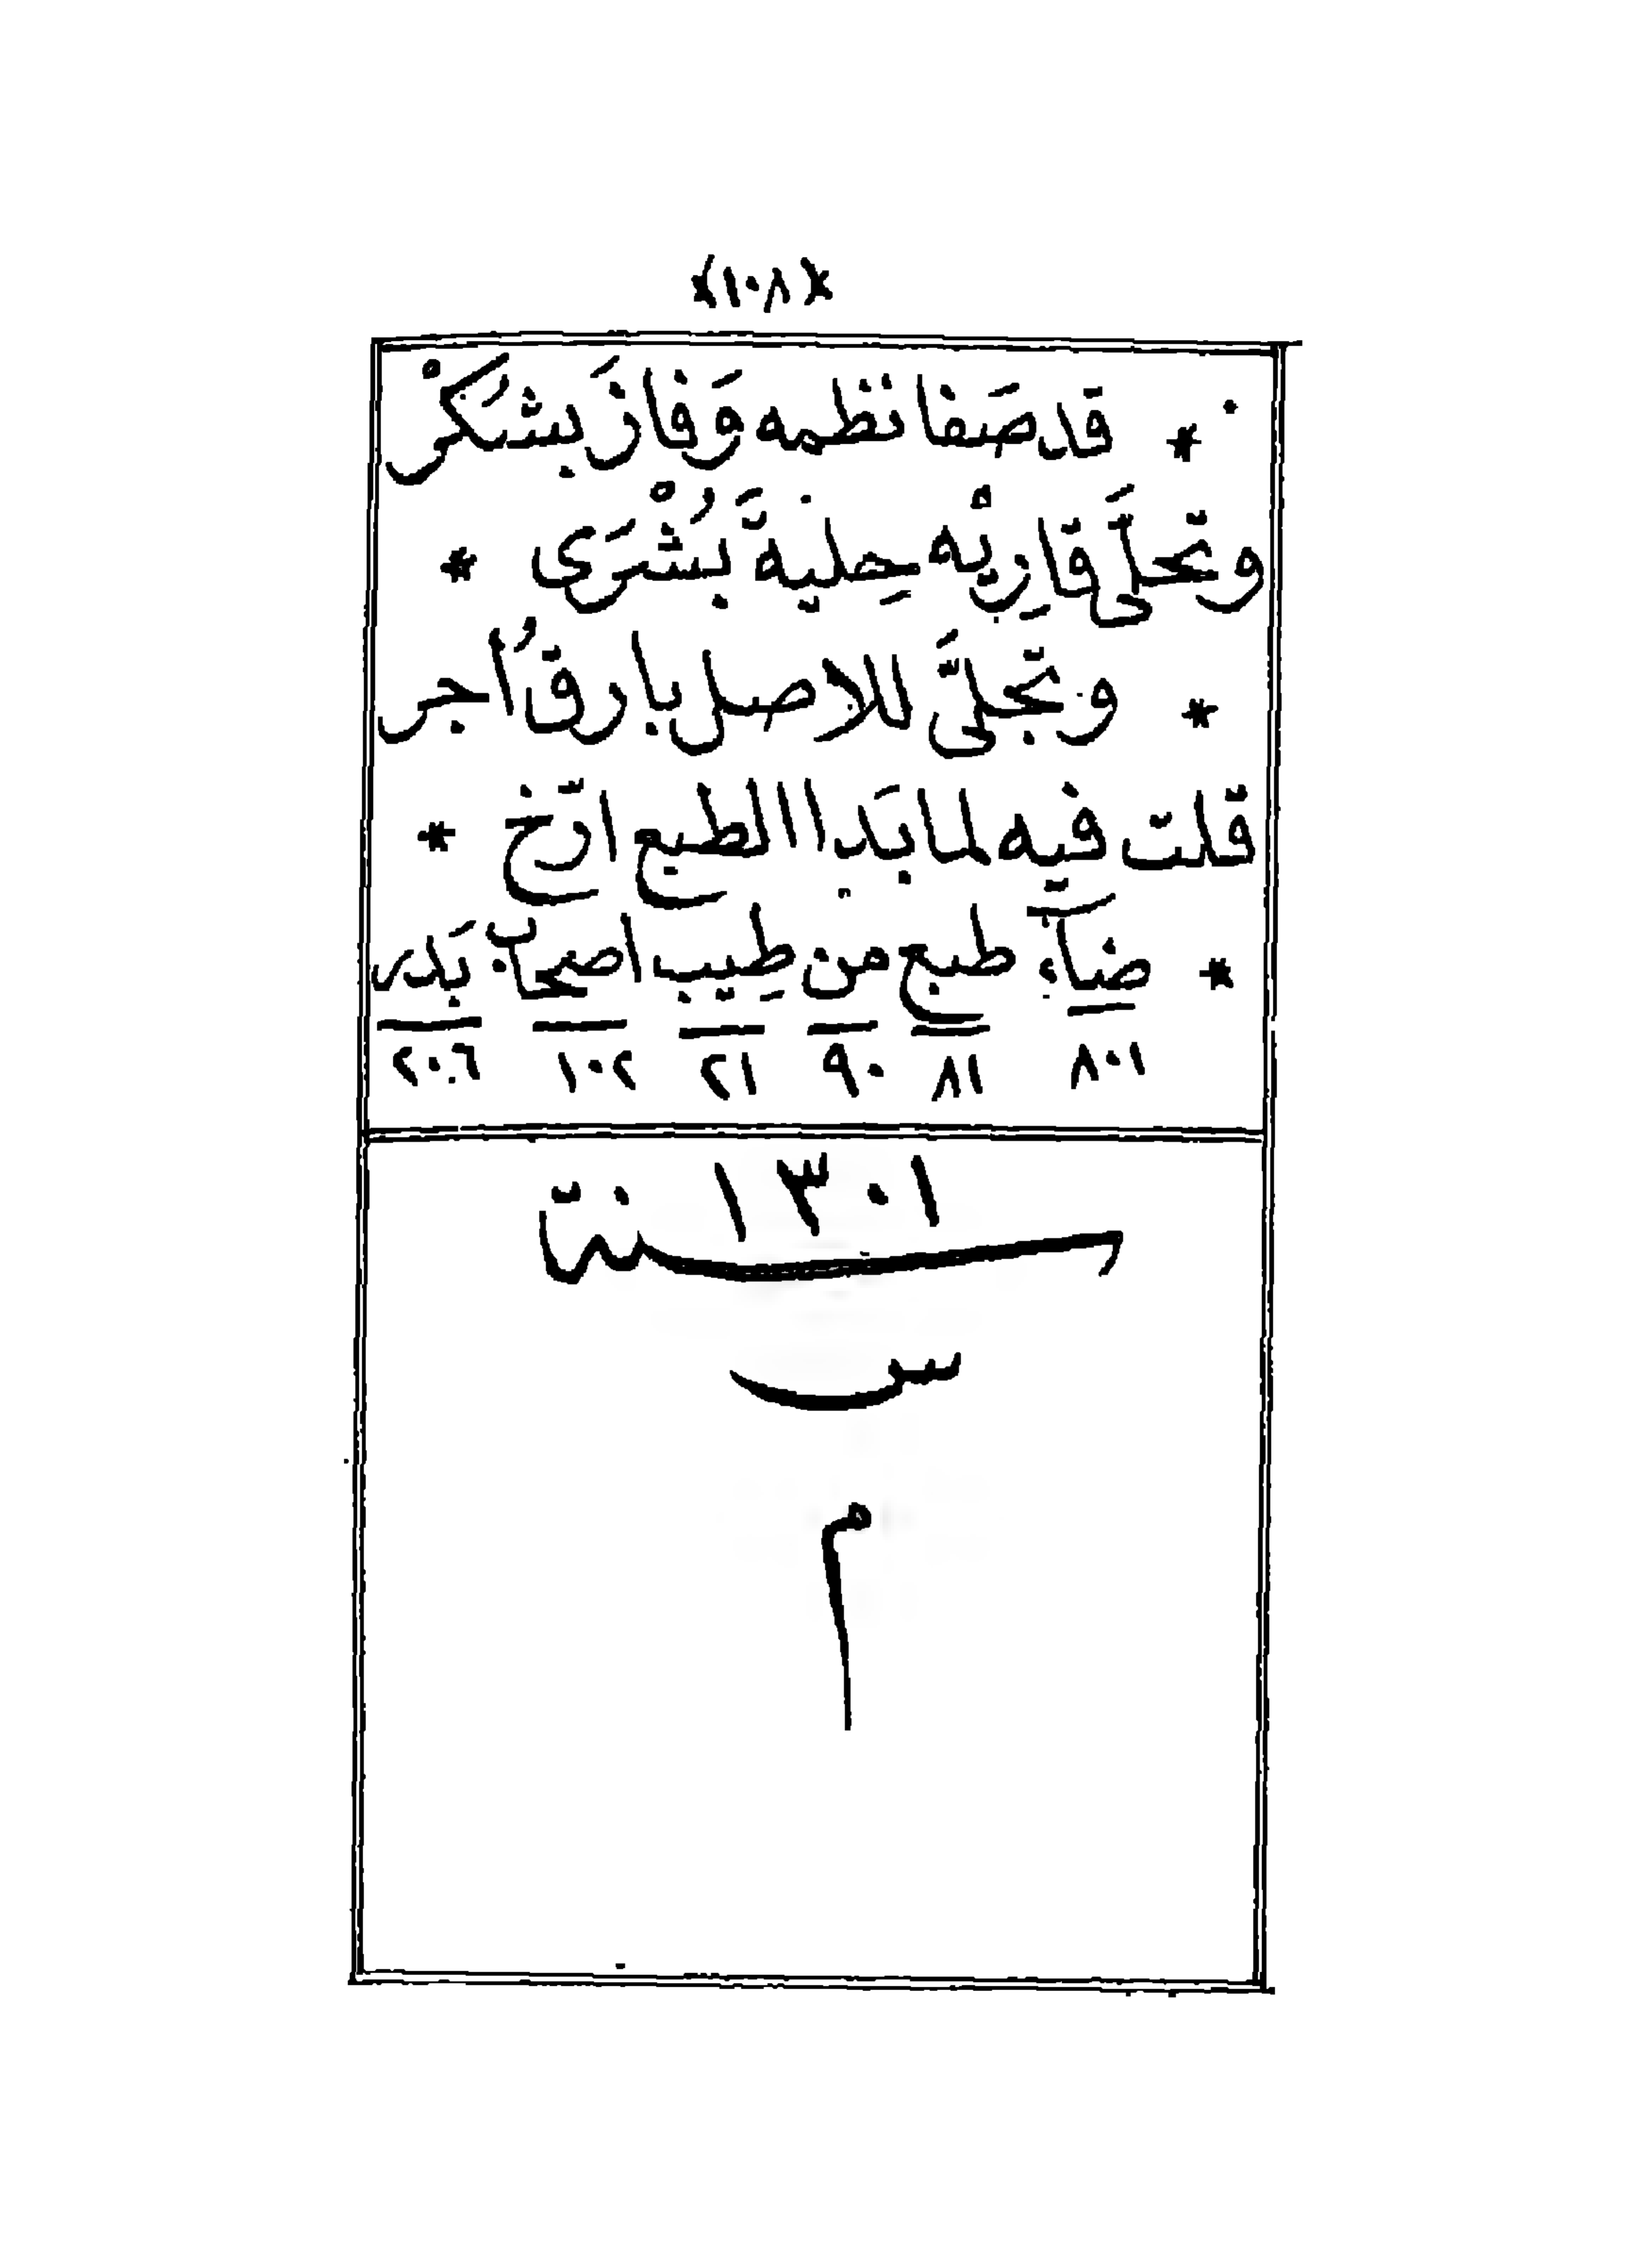 *(١٠٨)*
* قد صَفا نظمه وَفازَ بشُكْر
وتحلَّى قارِيْه حِليةَ بُشْرَى *
* وتجلَّى للاصل بارقُ اجر
قلت فيه لما بَدا الطبع ارّخ *
* ضياء طبع من طِيب اصحاب بَدر
٨٠١ ٨١ ٩٠ ٢١ ١٠٢ ٢٠٦
١٣٠١
سنة
س
م